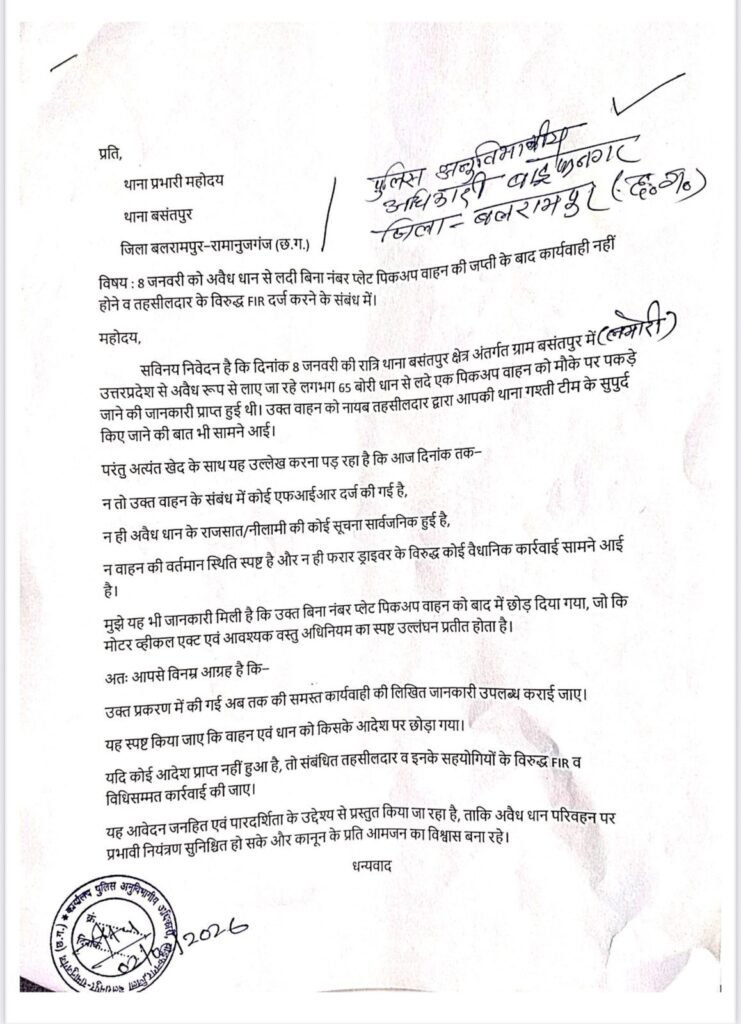 प्रति,
थाना प्रभारी महोदय
थाना बसंतपुर
जिला बलरामपुर-रामानुजगंज (छ.ग.)
पुलिस अनुविभागीय
अधिकारी वाड्रफनगर
जिला - बलरामपुर (छ.ग.)
विषय : 8 जनवरी को अवैध धान से लदी बिना नंबर प्लेट पिकअप वाहन की जप्ती के बाद कार्यवाही नहीं
होने व तहसीलदार के विरुद्ध FIR दर्ज करने के संबंध में।
महोदय,
सविनय निवेदन है कि दिनांक 8 जनवरी की रात्रि थाना बसंतपुर क्षेत्र अंतर्गत ग्राम बसंतपुर में
उत्तरप्रदेश से अवैध रूप से लाए जा रहे लगभग 65 बोरी धान से लदे एक पिकअप वाहन को मौके पर पकड़े
जाने की जानकारी प्राप्त हुई थी। उक्त वाहन को नायब तहसीलदार द्वारा आपकी थाना गश्ती टीम के सुपुर्द
किए जाने की बात भी सामने आई।
परंतु अत्यंत खेद के साथ यह उल्लेख करना पड़ रहा है कि आज दिनांक तक-
न तो उक्त वाहन के संबंध में कोई एफआईआर दर्ज की गई है,
न ही अवैध धान के राजसात/नीलामी की कोई सूचना सार्वजनिक हुई है,
न वाहन की वर्तमान स्थिति स्पष्ट है और न ही फरार ड्राइवर के विरुद्ध कोई वैधानिक कार्रवाई सामने आई
है।
मुझे यह भी जानकारी मिली है कि उक्त बिना नंबर प्लेट पिकअप वाहन को बाद में छोड़ दिया गया, जो कि
मोटर व्हीकल एक्ट एवं आवश्यक वस्तु अधिनियम का स्पष्ट उल्लंघन प्रतीत होता है।
अतः आपसे विनम्र आग्रह है कि-
उक्त प्रकरण में की गई अब तक की समस्त कार्यवाही की लिखित जानकारी उपलब्ध कराई जाए।
यह स्पष्ट किया जाए कि वाहन एवं धान को किसके आदेश पर छोड़ा गया।
यदि कोई आदेश प्राप्त नहीं हुआ है, तो संबंधित तहसीलदार व इनके सहयोगियों के विरुद्ध FIR व
विधिसम्मत कार्रवाई की जाए।
यह आवेदन जनहित एवं पारदर्शिता के उद्देश्य से प्रस्तुत किया जा रहा है, ताकि अवैध धान परिवहन पर
प्रभावी नियंत्रण सुनिश्चित हो सके और कानून के प्रति आमजन का विश्वास बना रहे।
धन्यवाद
कार्यालय पुलिस अनुविभागीय अधिकारी,
क्र.
दिनांक
2026